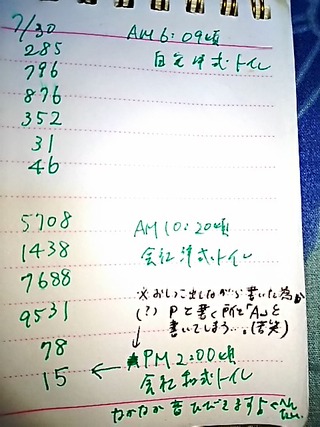 7/30 AM6:09頃
285 自宅洋式トイレ
796
876
352
31
46
5708 AM10:20頃
1438 会社洋式トイレ
7688
9531
※おしっこ出しながら書いた為か
(?) Pと書く所を「A」と
書いてしまう…。(苦笑)
78 PM2:00頃
15 ← 会社和式トイレ
なかなか音ひびきますよ